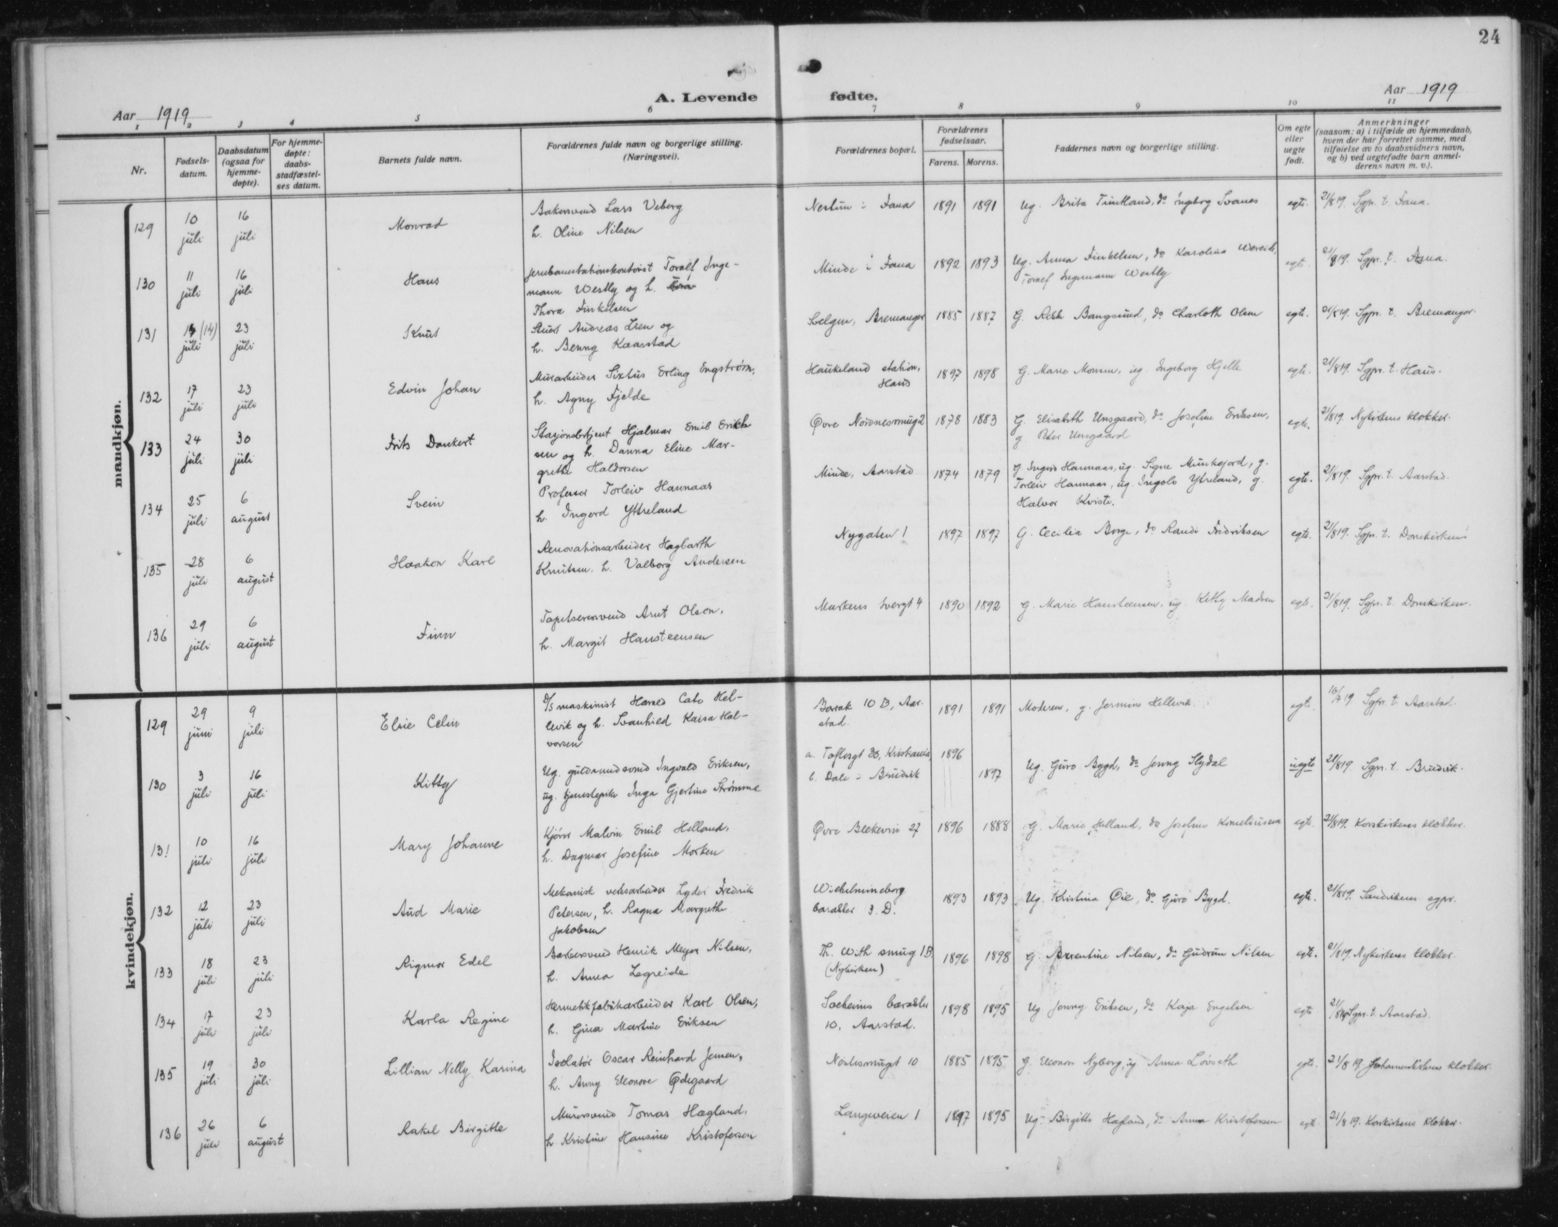 24
Aar 1919
A. Levende
fødte.
Aar 1919
1 2 3 4 5 6 7 8 9 10 11
Nr.
Fødsels-
datum.
Daabsdatum
(ogsaa for
hjemme-
døpte).
For hjemme-
døpte:
daabs-
stadfæstel-
ses datum.
Barnets fulde navn.
Forældrenes fulde navn og borgerlige stilling.
(Næringsvei).
Forældrenes bopæl.
Forældrenes
fødselsaar.
Farens. Morens.
Faddernes navn og borgerlige stilling.
Om egte
eller
uegte
født.
Anmerkninger
(saasom: a) i tilfælde av hjemmedaab,
hvem der har forrettet samme, med
tilføielse av to daabsvidners navn,
og b) ved uegtefødte barn anmel-
derens navn m. v.).
mandkjøn.
129 10 juli 16 juli Monrad
Bakersvend Lars Veberg
h. Oline Nilsen
Nestun i Fana 1891 1891 Ug. Brita Tuntland, do Ingeborg Svanes egte. 21/8 19. Sgpr. t. Fana.
130 11 juli 16 juli Hans
Toralf Inge-
mann Westly og h.
Thora Finkelsen
Minde i Fana 1892 1893 Ug. Anna Finkelsen, do Karoline
Toralf Ingemann Westly
egte. 21/8 19. Sgpr. t. Fana.
131 (14) juli 23 juli Knut
Andreas og
h. Benny Kaarstad
Svelgen, Bremanger 1885 1887 G. Bangsund, do Charloth Olsen egte. 21/8 19. Sgpr. t. Bremanger.
132 17 juli 23 juli Edvin Johan
Murarbeider Sixtus Erling Engstrøm,
h. Agny Fjelde
Haukeland station,
Haus
1897 1898 G. Marie Monsen, ug. Ingeborg Hjelle egte. 21/8 19. Sgpr. t. Haus.
133 24 juli 30 juli Frits Dankert
Stasjonsbetjent Hjalmar Emil Erik-
sen og h. Danna Eline Mar-
grethe Haldorsen
Øvre Nordnessmug 2 1878 1883 G. Elisabeth Unsgaard, do Josefine Eriksen,
g Peter Unsgaard
egte. 21/8 19 Nykirkens klokker.
134 25 juli 6 august Svein
Professor Torleiv Hannaas
h. Ingerd Yttreland
Minde, Aarstad 1874 1879 g. Ingris Hannaas, ug. Signe Munkejord, g.
Torleiv Hannaas, ug. Ingolv Yttreland, g.
Halvor Kviste.
egte. 21/8 19. Sgpr. t. Aarstad.
135 28 juli 6 august Haakon Karl
Renovationsarbeider Hagbarth
Knutsen. h. Valborg Andersen
Nygaten 1 1897 1897 G. Cecilie Borge, do Randi Fredriksen egte. 21/8 19. Sgpr. t. Domkirken
136 29 juli 6 august Finn
Tapetserersvend Arnt Olsen.
h. Margit Hansteensen
Markens tvergt 4 1890 1892 g. Marie Hansteensen, ug. Kitty Madsen egte. 21/8 19. Sgpr. t. Domkirken.
kvindekjøn.
129 29 juni 9 juli Elsie Celin
D/S maskinist Harald Cato Hel-
levik og h. Svanhild Kaisa Hal-
vorsen
10 B, Aar-
stad.
1891 1891 Moderen, g. Jermine Hellevik. egte. 10/7 19 Sgpr. t. Aarstad.
130 3 juli 16 juli Kitty
Ug. guldsmedsvend Ingvald Eriksen,
ug. tjenestepike Inga Gjertine Strømme
a. Toftesgt 38, Kristiania
b. Dale i Bruvik
1896
1897
Ug. Guro Bygd, do Jenny Slydal uegte 21/8 19. Sgpr. t. Bruvik.
131 10 juli 16 juli Mary Johanne
Kjører Malvin Emil Helland,
h. Dagmar Josefine Morken
Øvre Blekevei 27 1896 1888 G. Marie Helland, do Josefine Korneliussen egte. 21/8 19. Korskirkens klokker.
132 12 juli 23 juli Aud Marie
Mekanisk verksarbeider Lyder Fredrik
Petersen, h. Ragna Margrethe
Jakobsen
Wilhelmineborg
barakker 3. D.
1893 1893 Ug. Kristina Øie, do Guro Bygd. egte. 21/8 19. Sandvikens sgpr.
133 18 juli 23 juli Rigmor Edel
Barbersvend Henrik Meyer Nilsen,
h. Anna Legreide
Th. With smug 1B
(Nykirken)
1896 1898 G. Berentine Nilsen, do Gudrun Nilsen egte. 21/8 19. Nykirkens klokker.
134 17 juli 23 juli Karla Regine
Hermetikfabrikarbeider Karl Olsen,
h. Gina Martine Eriksen
Solheims barakker
10, Aarstad.
1898 1895 Ug. Jenny Eriksen, do Kaja Engelsen egte 21/8 19 Sgpr. t. Aarstad.
135 19 juli 30 juli Lillian Nelly Karina
Isolatør Oscar Reinhard Jensen,
h. Anny Eleonore Ødegaard
Nostesmuget 10 1885 1895 g. Eleonore Nyborg, ug. Anna Løvseth egte. 21/8 19 Johanneskirkens klokker.
136 26 juli 6 august Rakel Birgitte
Murersvend Tomas Hagland,
h. Kristine Hansine Kristofersen
Langeveien 1 1897 1895 Ug. Birgitte Hagland, do Anna Kristofersen egte 21/8 19. Korskirkens klokker.